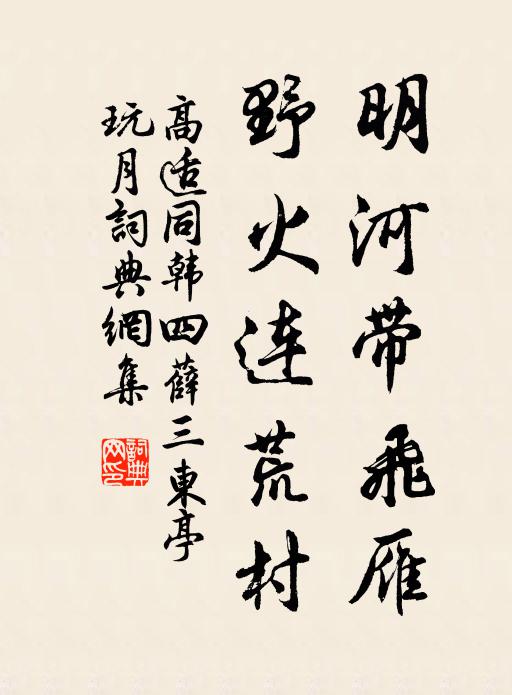 明河带飛雁
野火連荒村
高适同韩四薛三東亭
玩月詞典網集
詞典网印